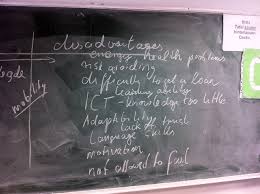 disadvantages
energy health problems
risk avoiding
difficulty to get a loan
learning ability
ICT - knowledge too little
Adaptability
lack of
Language skills
motivation
not allowed to fail
mobility